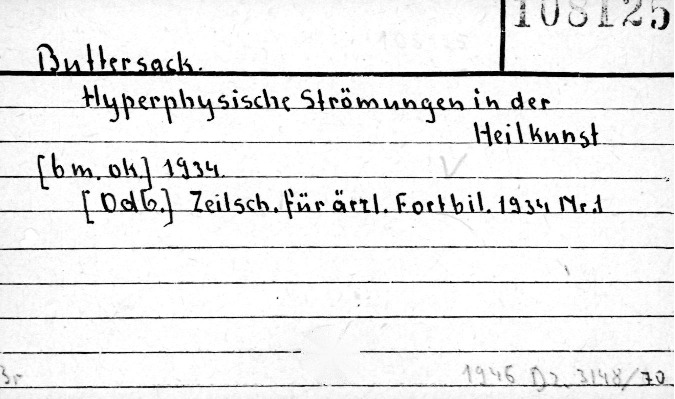 108125
Buttersack.
Hyperphysische Strömungen in der
Heilkunst
[b m. ok.] 1934
[Odb.] Zeitsch. für ärztl. Fortbil. 1934 Nr.1
1946 Dz. 3148/70